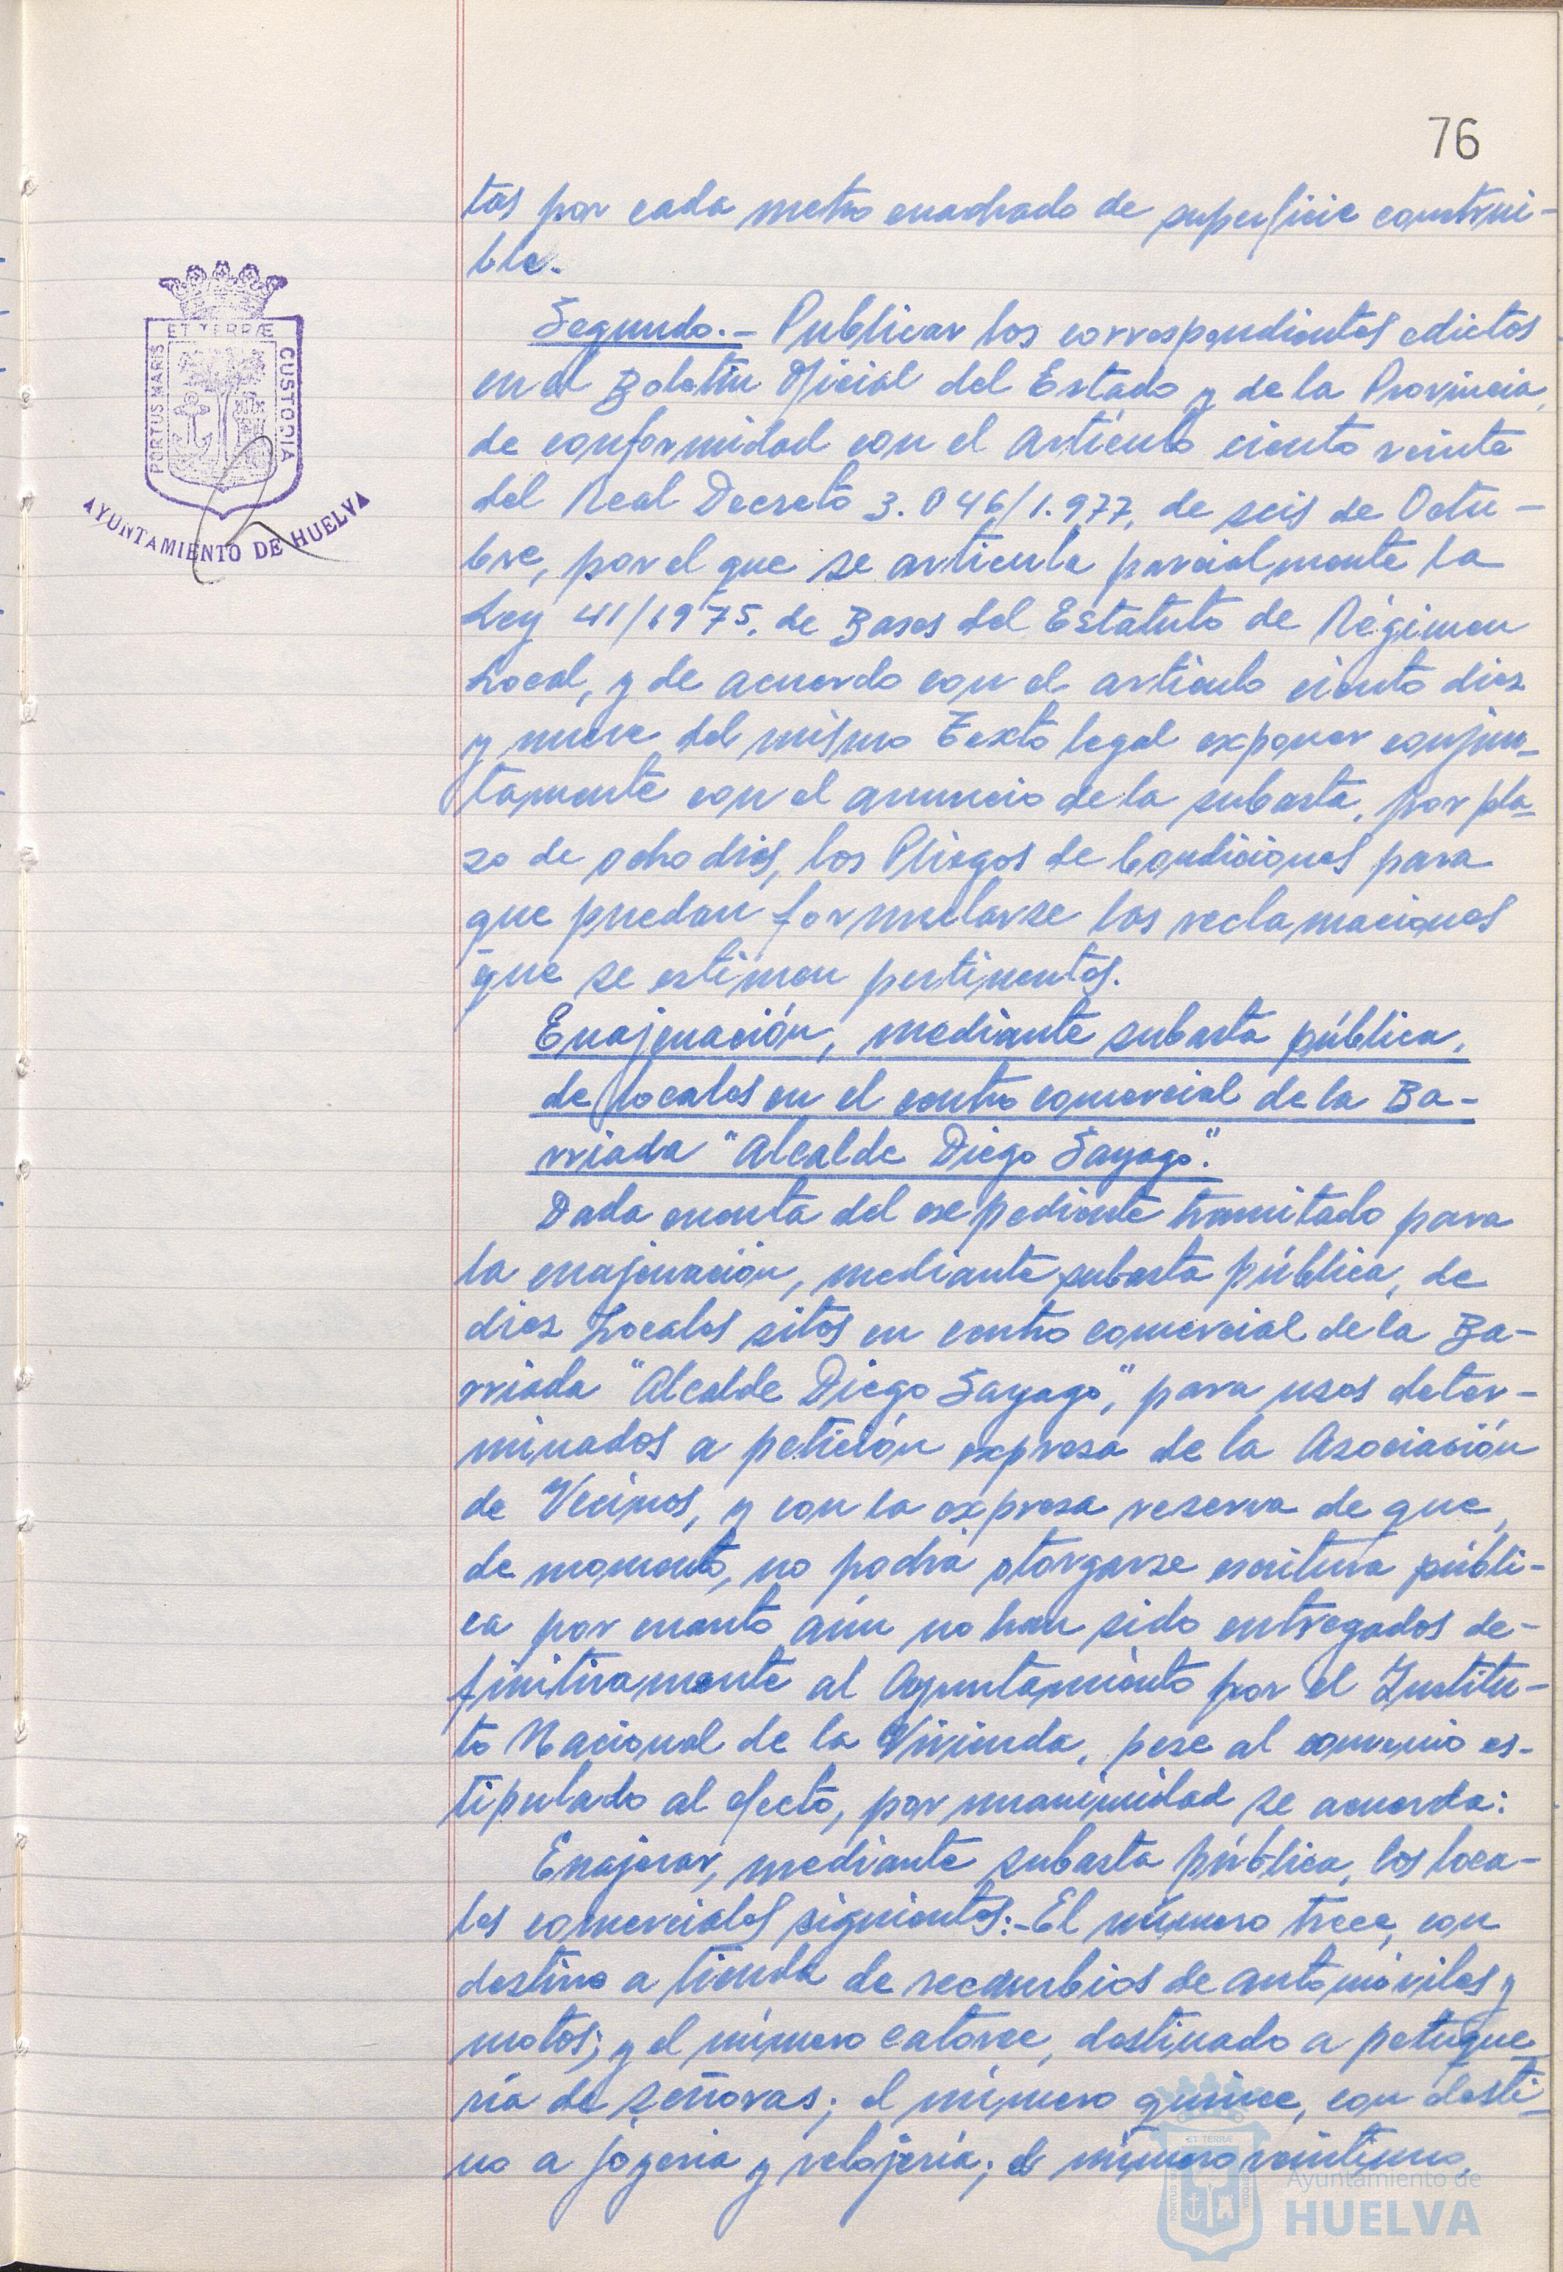 76
tas por cada metro cuadrado de superficie construi-
ble.
Segundo.- Publicar los correspondientes edictos
en el Boletín Oficial del Estado y de la Provincia,
de conformidad con el artículo ciento veinte
del Real Decreto 3.046/1.977, de seis de Octu-
bre, por el que se articula parcialmente la
Ley 41/1975, de Bases del Estatuto de Régimen
Local, y de acuerdo con el artículo ciento diez
y nueve del mismo Texto legal exponer conjun-
tamente con el anuncio de la subasta, por pla-
zo de ocho días, los Pliegos de Condiciones para
que puedan formularse las reclamaciones
que se estimen pertinentes.
Enajenación, mediante subasta pública,
de locales en el centro comercial de la Ba-
rriada "Alcalde Diego Sayago".
Dada cuenta del expediente tramitado para
la enajenación, mediante subasta pública, de
diez Locales sitos en centro comercial de la Ba-
rriada "Alcalde Diego Sayago", para usos deter-
minados a petición expresa de la Asociación
de Vecinos, y con la expresa reserva de que,
de momento, no podrá otorgarse escritura públi-
ca por cuanto aún no han sido entregados de-
finitivamente al Ayuntamiento por el Institu-
to Nacional de la Vivienda, pese al convenio es-
tipulado al efecto, por unanimidad se acuerda:
Enajenar, mediante subasta pública, los loca-
les comerciales siguientes:- El número trece, con
destino a tienda de recambios de automóviles y
motos; y el número catorce, destinado a peluque-
ría de señoras; el número quince, con desti-
no a joyería y relojería; el número veintiuno,
ET TERRÆ
PORTUS MARIS
CUSTODIA
AYUNTAMIENTO DE HUELVA
Ayuntamiento de
HUELVA